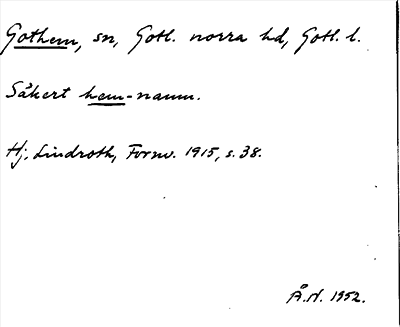 Gothem, sn, Gotl. norra hd, Gotl. l.
Säkert hem-namn.
Hj. Lindroth, Fornv. 1915, s. 38.
Å.N. 1952.